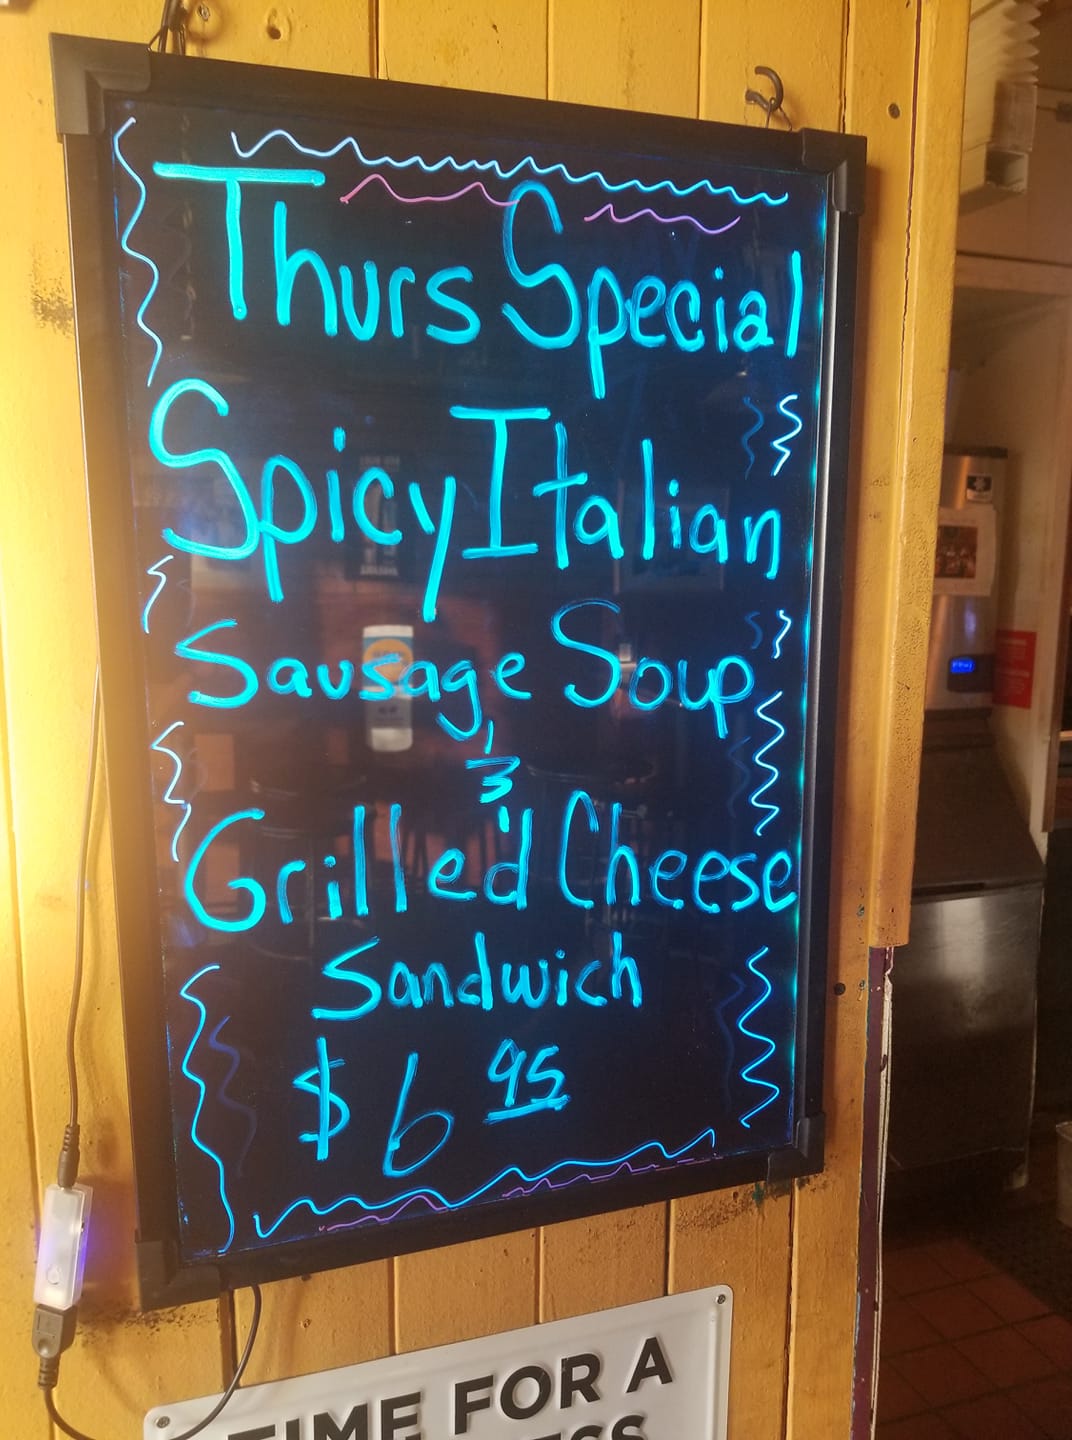 Thurs Special
Spicy Italian
Sausage Soup
&
Grilled Cheese
Sandwich
$6 95
TIME FOR A